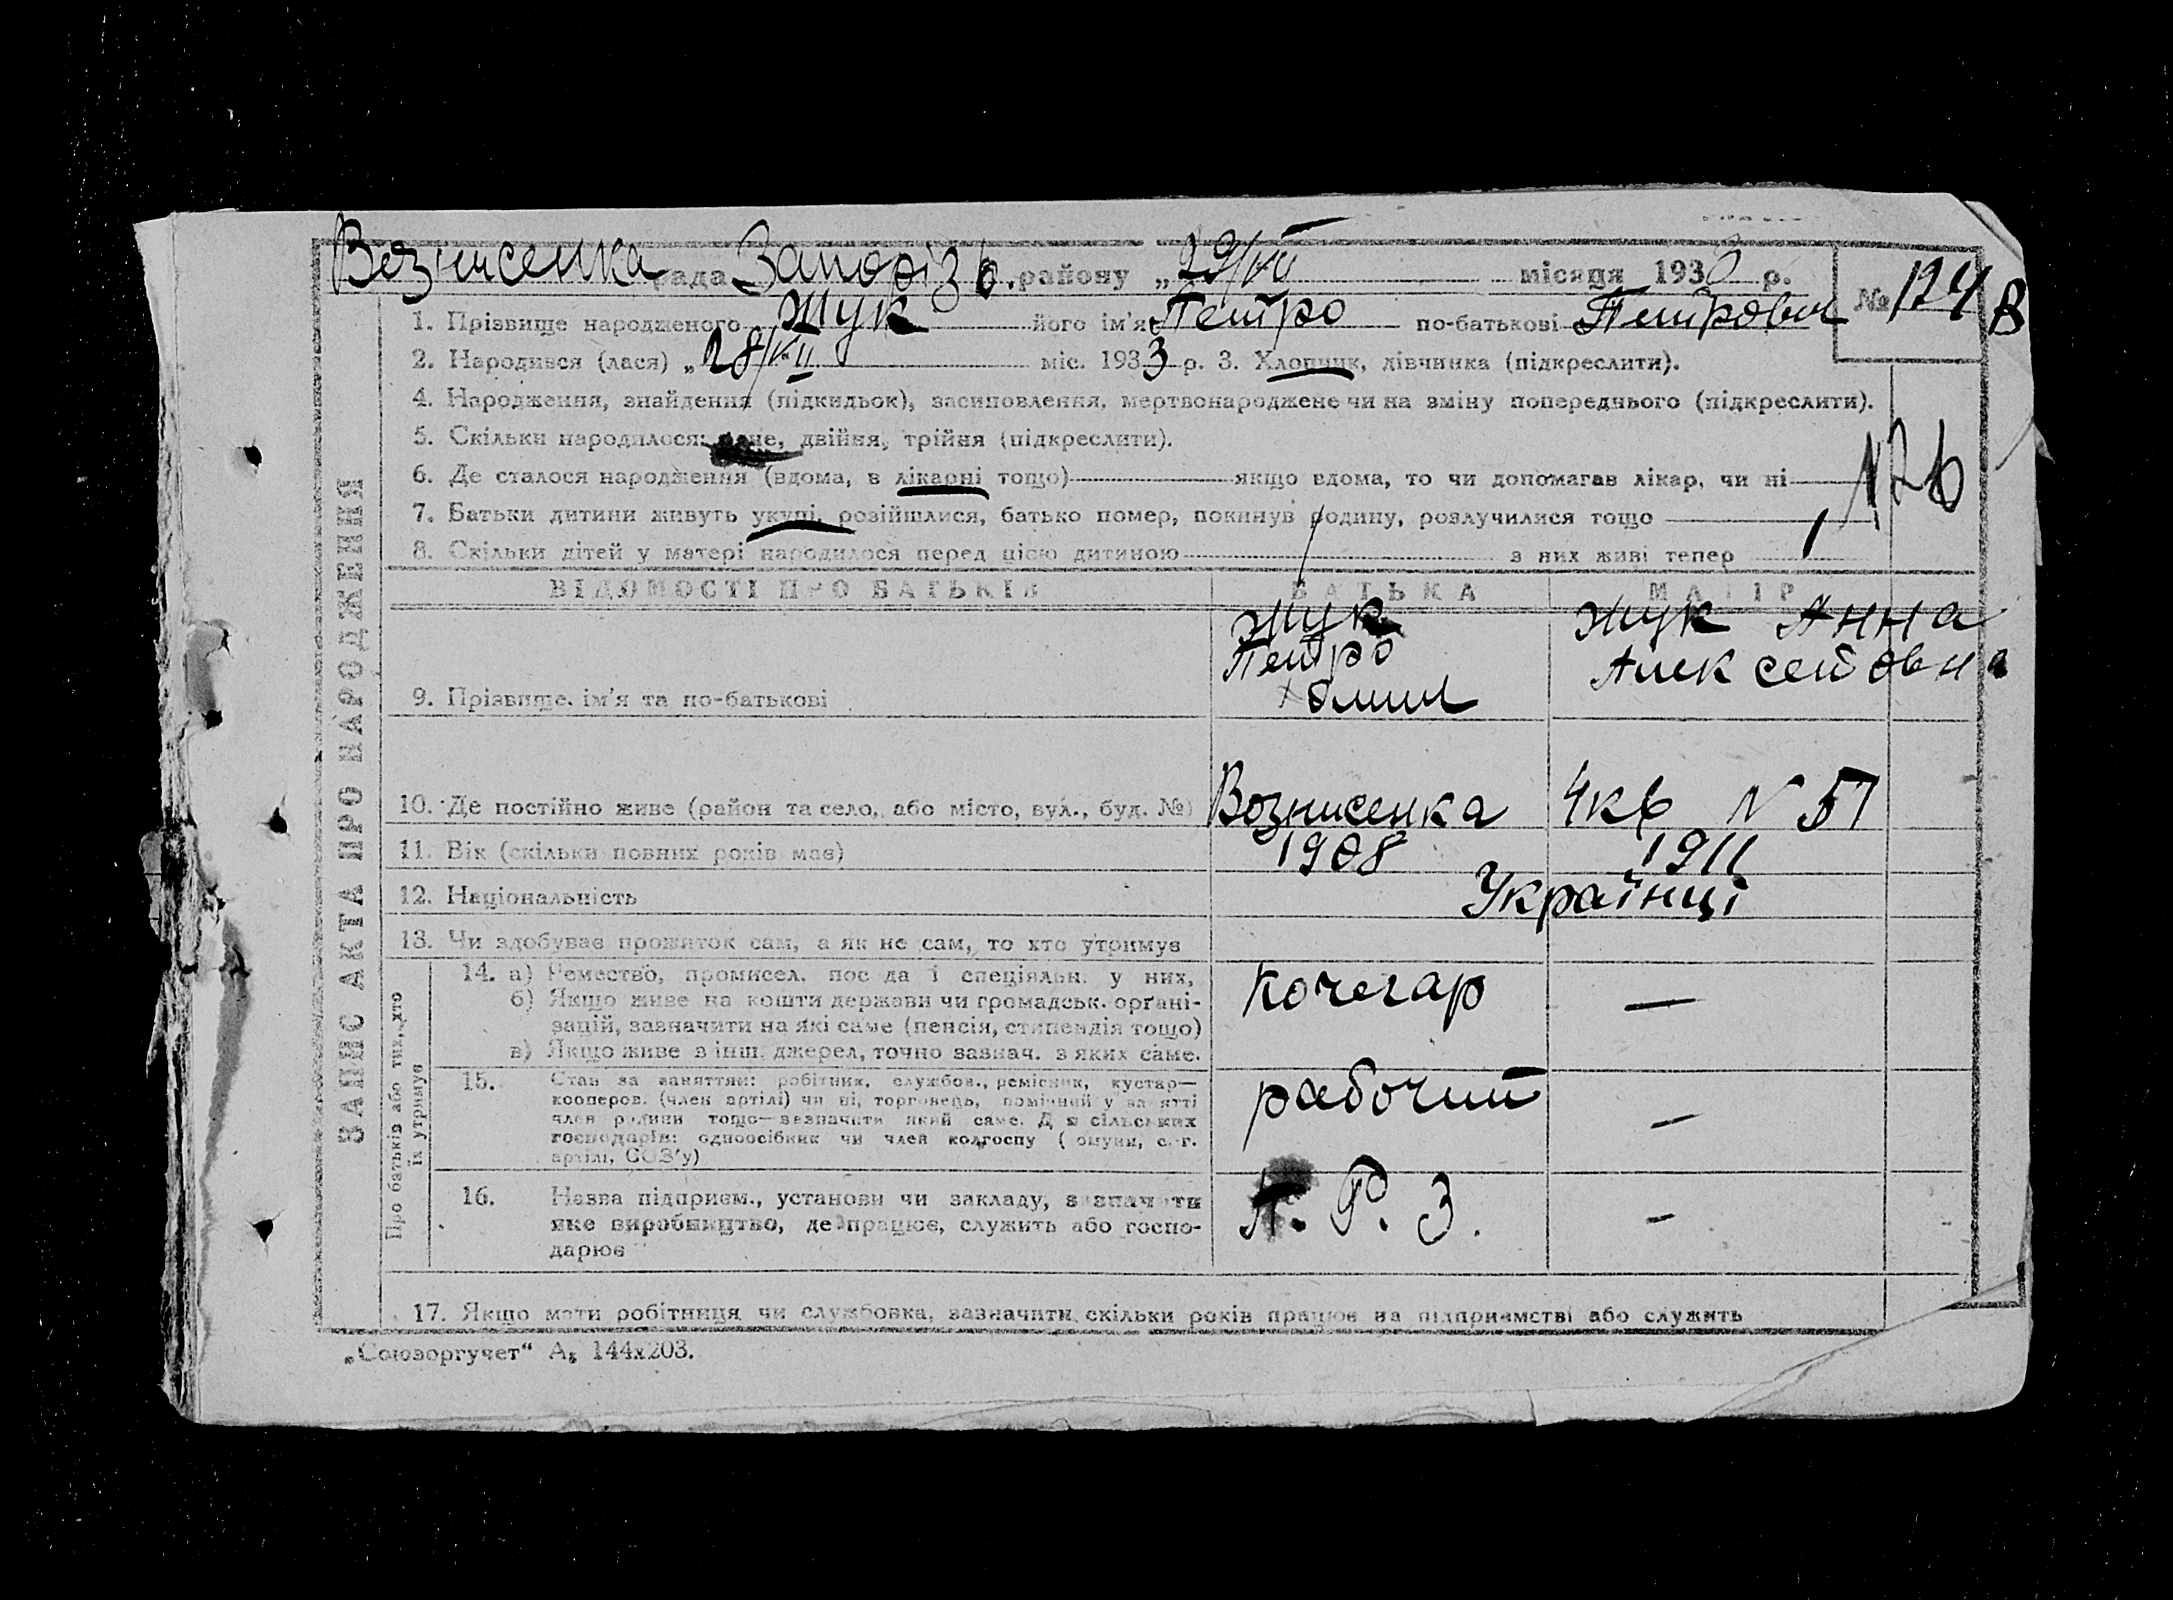 Вознисенка рада Запоріз. району „29/VII місяця 1933 р.
№ 124 в
1. Прізвище народженого Жук його ім'я Петро по-батькові Петрович
2. Народився (лася) „28/VII міс. 1933 р. 3. Хлопчик, дівчинка (підкреслити).
4. Народження, знайдення (підкидьок), засиновлення, мертвонароджене чи на зміну попереднього (підкреслити).
5. Скільки народилося: одне, двійня, трійня (підкреслити).
126
6. Де сталося народження (вдома, в лікарні тощо) якщо вдома, то чи допомагав лікар, чи ні
7. Батьки дитини живуть укупі, розійшлися, батько помер, покинув родину, розлучилися тощо
8. Скільки дітей у матері народилося перед цією дитиною 1 з них живі тепер 1
ЗАПИС АКТА ПРО НАРОДЖЕННЯ
ВІДОМОСТІ ПРО БАТЬКІВ БАТЬКА МАТІР
9. Прізвище, ім'я та по-батькові
Жук
Петро
Жук Анна
Алексейовна
10. Де постійно живе (район та село, або місто, вул., буд. №) Вознисенка 4 кв N 57
11. Вік (скільки повних років має) 1908 1911
12. Національність Українці
13. Чи здобуває прожиток сам, а як не сам, то хто утримує
Про батьків або тих, хто
їх утримує
14. а) Ремество, промисел, посада і спеціяльн. у них,
б) Якщо живе на кошти держави чи громадськ. органі-
зацій, зазначити на які саме (пенсія, стипендія тощо)
в) Якщо живе з інш. джерел, точно зазнач. з яких саме.
кочегар —
15. Стан за заняттям: робітник, службов., ремісник, кустар—
кооперов. (член артілі) чи ні, торговець, помічний у занятті
член родини тощо—зазначити який саме. Для сільських
господарів: одноосібник чи член колгоспу (комуни, с.-г.
артілі, СОЗ'у)
рабочий —
16. Назва підприєм., установи чи закладу, зазначити
яке виробництво, де працює, служить або госпо-
дарює
П. Р. З. —
17. Якщо мати робітниця чи службовка, зазначити, скільки років працює на підприємстві або служить
„Союзоргучет" А5 144х203.